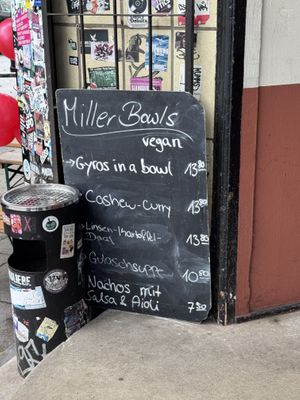 Miller Bowls
vegan
→ Gyros in a bowl 13.80
Cashew-curry 13.80
Linsen-Kartoffel-
Daal 13.80
Gulaschsuppe 10.50
Nachos mit
Salsa & Aioli 7.50